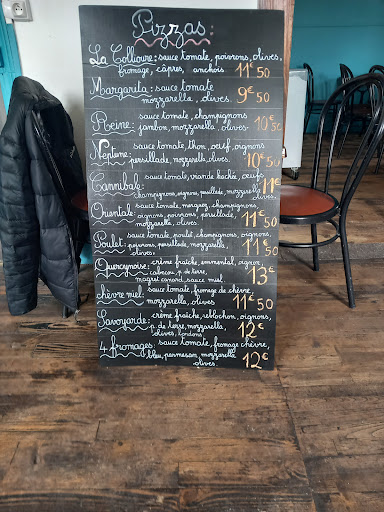 Pizzas:
La Collioure: sauce tomate, poivrons, olives,
fromage, câpres, anchois 11€50
Margarita: sauce tomate
mozzarella, olives. 9€50
Reine: sauce tomate, champignons
jambon, mozzarella, olives. 10€50
Neptune: sauce tomate, thon, oeuf, oignons
persillade, mozzarella, olives. 10€50
Cannibale: sauce tomate, viande hachée, oeufs
champignons, oignons, persillade, mozzarella 11€
olives
Orientale: sauce tomate, merguez, champignons,
oignons, poivrons, persillade,
mozzarella, olives. 11€50
Poulet: sauce tomate, poulet, champignons, oignons,
poivrons, persillade, mozzarella,
olives. 11€50
Quercynoise: crème fraîche, emmental, oignon,
cabécou, p. de terre,
magret canard, sauce miel 13€
chèvre miel: sauce tomate, fromage de chèvre,
mozzarella, olives 11€50
Savoyarde: crème fraîche, reblochon, oignons,
p. de terre, mozzarella,
olives, lardons. 12€
4 fromages: sauce tomate, fromage chèvre,
bleu, parmesan, mozzarella
olives. 12€